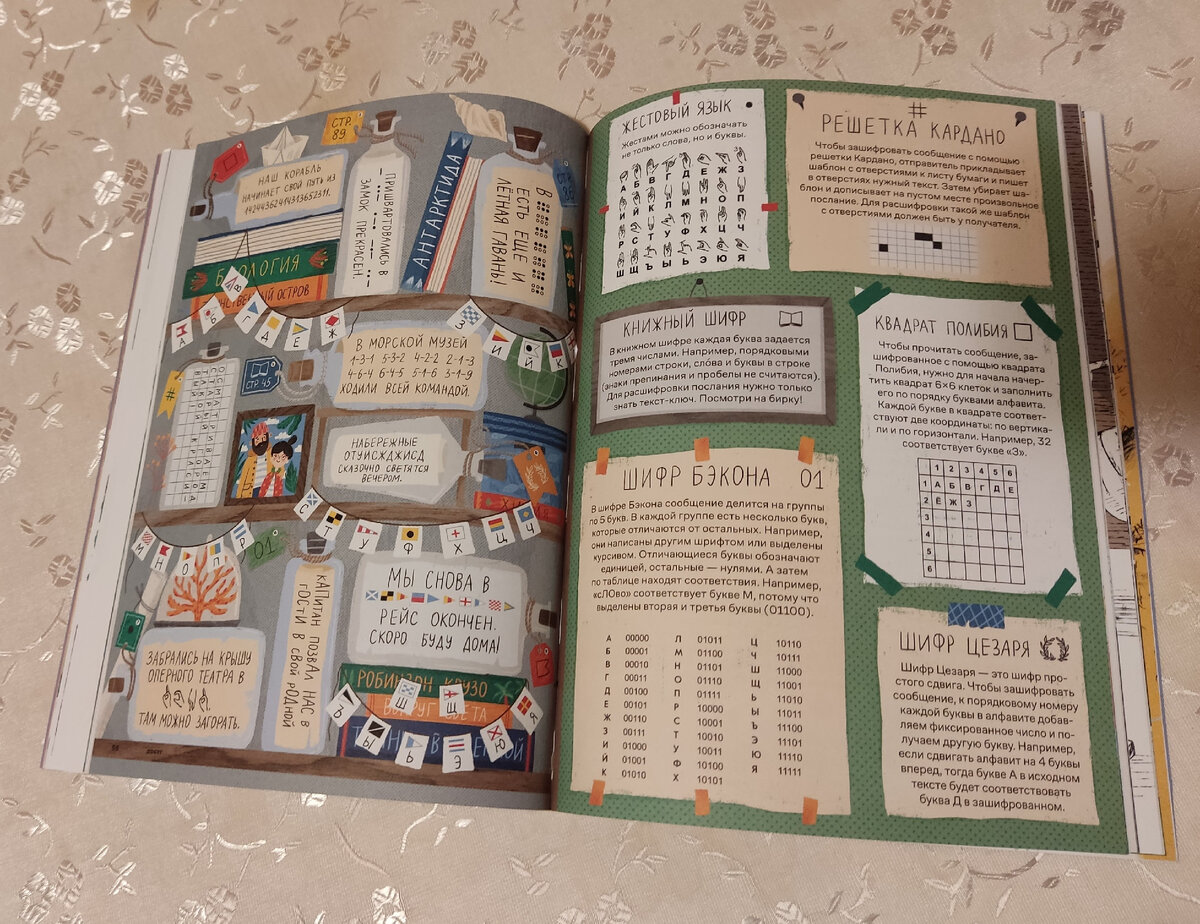 СТР. 89
НАШ КОРАБЛЬ
НАЧИНАЕТ СВОЙ ПУТЬ ИЗ
БИОЛОГИЯ
ОСТРОВ
ПРИШВАРТОВАЛИСЬ В
ЗАМОК ПРЕКРАСЕН.
АНТАРКТИДА
В
ЕСТЬ ЕЩЕ И
ЛЁТНАЯ ГАВАНЬ!
А Б В Г Д Е Ж
З И Й К
#
СТР. 45
В МОРСКОЙ МУЗЕЙ
1-3-1 5-3-2 4-2-2 2-1-3
4-6-4 6-4-5 5-1-6 3-1-9
ХОДИЛИ ВСЕЙ КОМАНДОЙ.
НАБЕРЕЖНЫЕ
ОТУИСЖДЖИСД
СКАЗОЧНО СВЕТЯТСЯ
ВЕЧЕРОМ.
М Н О П Р
С Т У Ф Х Ц Ч
01
КАПИТАН ПОЗВАЛ НАС В
ГОСТИ В СВОЙ РОДНОЙ
МЫ СНОВА В
РЕЙС ОКОНЧЕН.
СКОРО БУДУ ДОМА!
ЗАБРАЛИСЬ НА КРЫШУ
ОПЕРНОГО ТЕАТРА В
ТАМ МОЖНО ЗАГОРАТЬ.
РОБИНЗОН КРУЗО
ВОКРУГ СВЕТА
Ъ Ы Ш Ь Щ Э Ю Я
ЖЕСТОВЫЙ ЯЗЫК
Жестами можно обозначать
не только слова, но и буквы.
А Б В Г Д Е Ж З
И Й К Л М Н О П
Р С Т У Ф Х Ц Ч
Ш Щ Ъ Ы Ь Э Ю Я
#
РЕШЕТКА КАРДАНО
Чтобы зашифровать сообщение с помощью
решетки Кардано, отправитель прикладывает
шаблон с отверстиями к листу бумаги и пишет
в отверстиях нужный текст. Затем убирает ша-
блон и дописывает на пустом месте произвольное
послание. Для расшифровки такой же шаблон
с отверстиями должен быть у получателя.
КНИЖНЫЙ ШИФР
В книжном шифре каждая буква задается
тремя числами. Например, порядковыми
номерами строки, сло́ва и буквы в строке
(знаки препинания и пробелы не считаются).
Для расшифровки послания нужно только
знать текст-ключ. Посмотри на бирку!
КВАДРАТ ПОЛИБИЯ
Чтобы прочитать сообщение, за-
шифрованное с помощью квадрата
Полибия, нужно для начала начер-
тить квадрат 6×6 клеток и заполнить
его по порядку буквами алфавита.
Каждой букве в квадрате соответ-
ствуют две координаты: по вертика-
ли и по горизонтали. Например, 32
соответствует букве «З».
1 2 3 4 5 6
1 А Б В Г Д Е
2 Ё Ж З
3
4
5
6
ШИФР БЭКОНА 01
В шифре Бэкона сообщение делится на группы
по 5 букв. В каждой группе есть несколько букв,
которые отличаются от остальных. Например,
они написаны другим шрифтом или выделены
курсивом. Отличающиеся буквы обозначают
единицей, остальные — нулями. А затем
по таблице находят соответствия. Например,
«сЛОво» соответствует букве М, потому что
выделены вторая и третья буквы (01100).
А 00000 Л 01011 Ц 10110
Б 00001 М 01100 Ч 10111
В 00010 Н 01101 Ш 11000
Г 00011 О 01110 Щ 11001
Д 00100 П 01111 Ь 11010
Е 00101 Р 10000 Ы 11011
Ж 00110 С 10001 Ъ 11100
З 00111 Т 10010 Э 11101
И 01000 У 10011 Ю 11110
Й 01001 Ф 10100 Я 11111
К 01010 Х 10101
ШИФР ЦЕЗАРЯ
Шифр Цезаря — это шифр про-
стого сдвига. Чтобы зашифровать
сообщение, к порядковому номеру
каждой буквы в алфавите добав-
ляем фиксированное число и по-
лучаем другую букву. Например,
если сдвигать алфавит на 4 буквы
вперед, тогда букве А в исходном
тексте будет соответствовать
буква Д в зашифрованном.